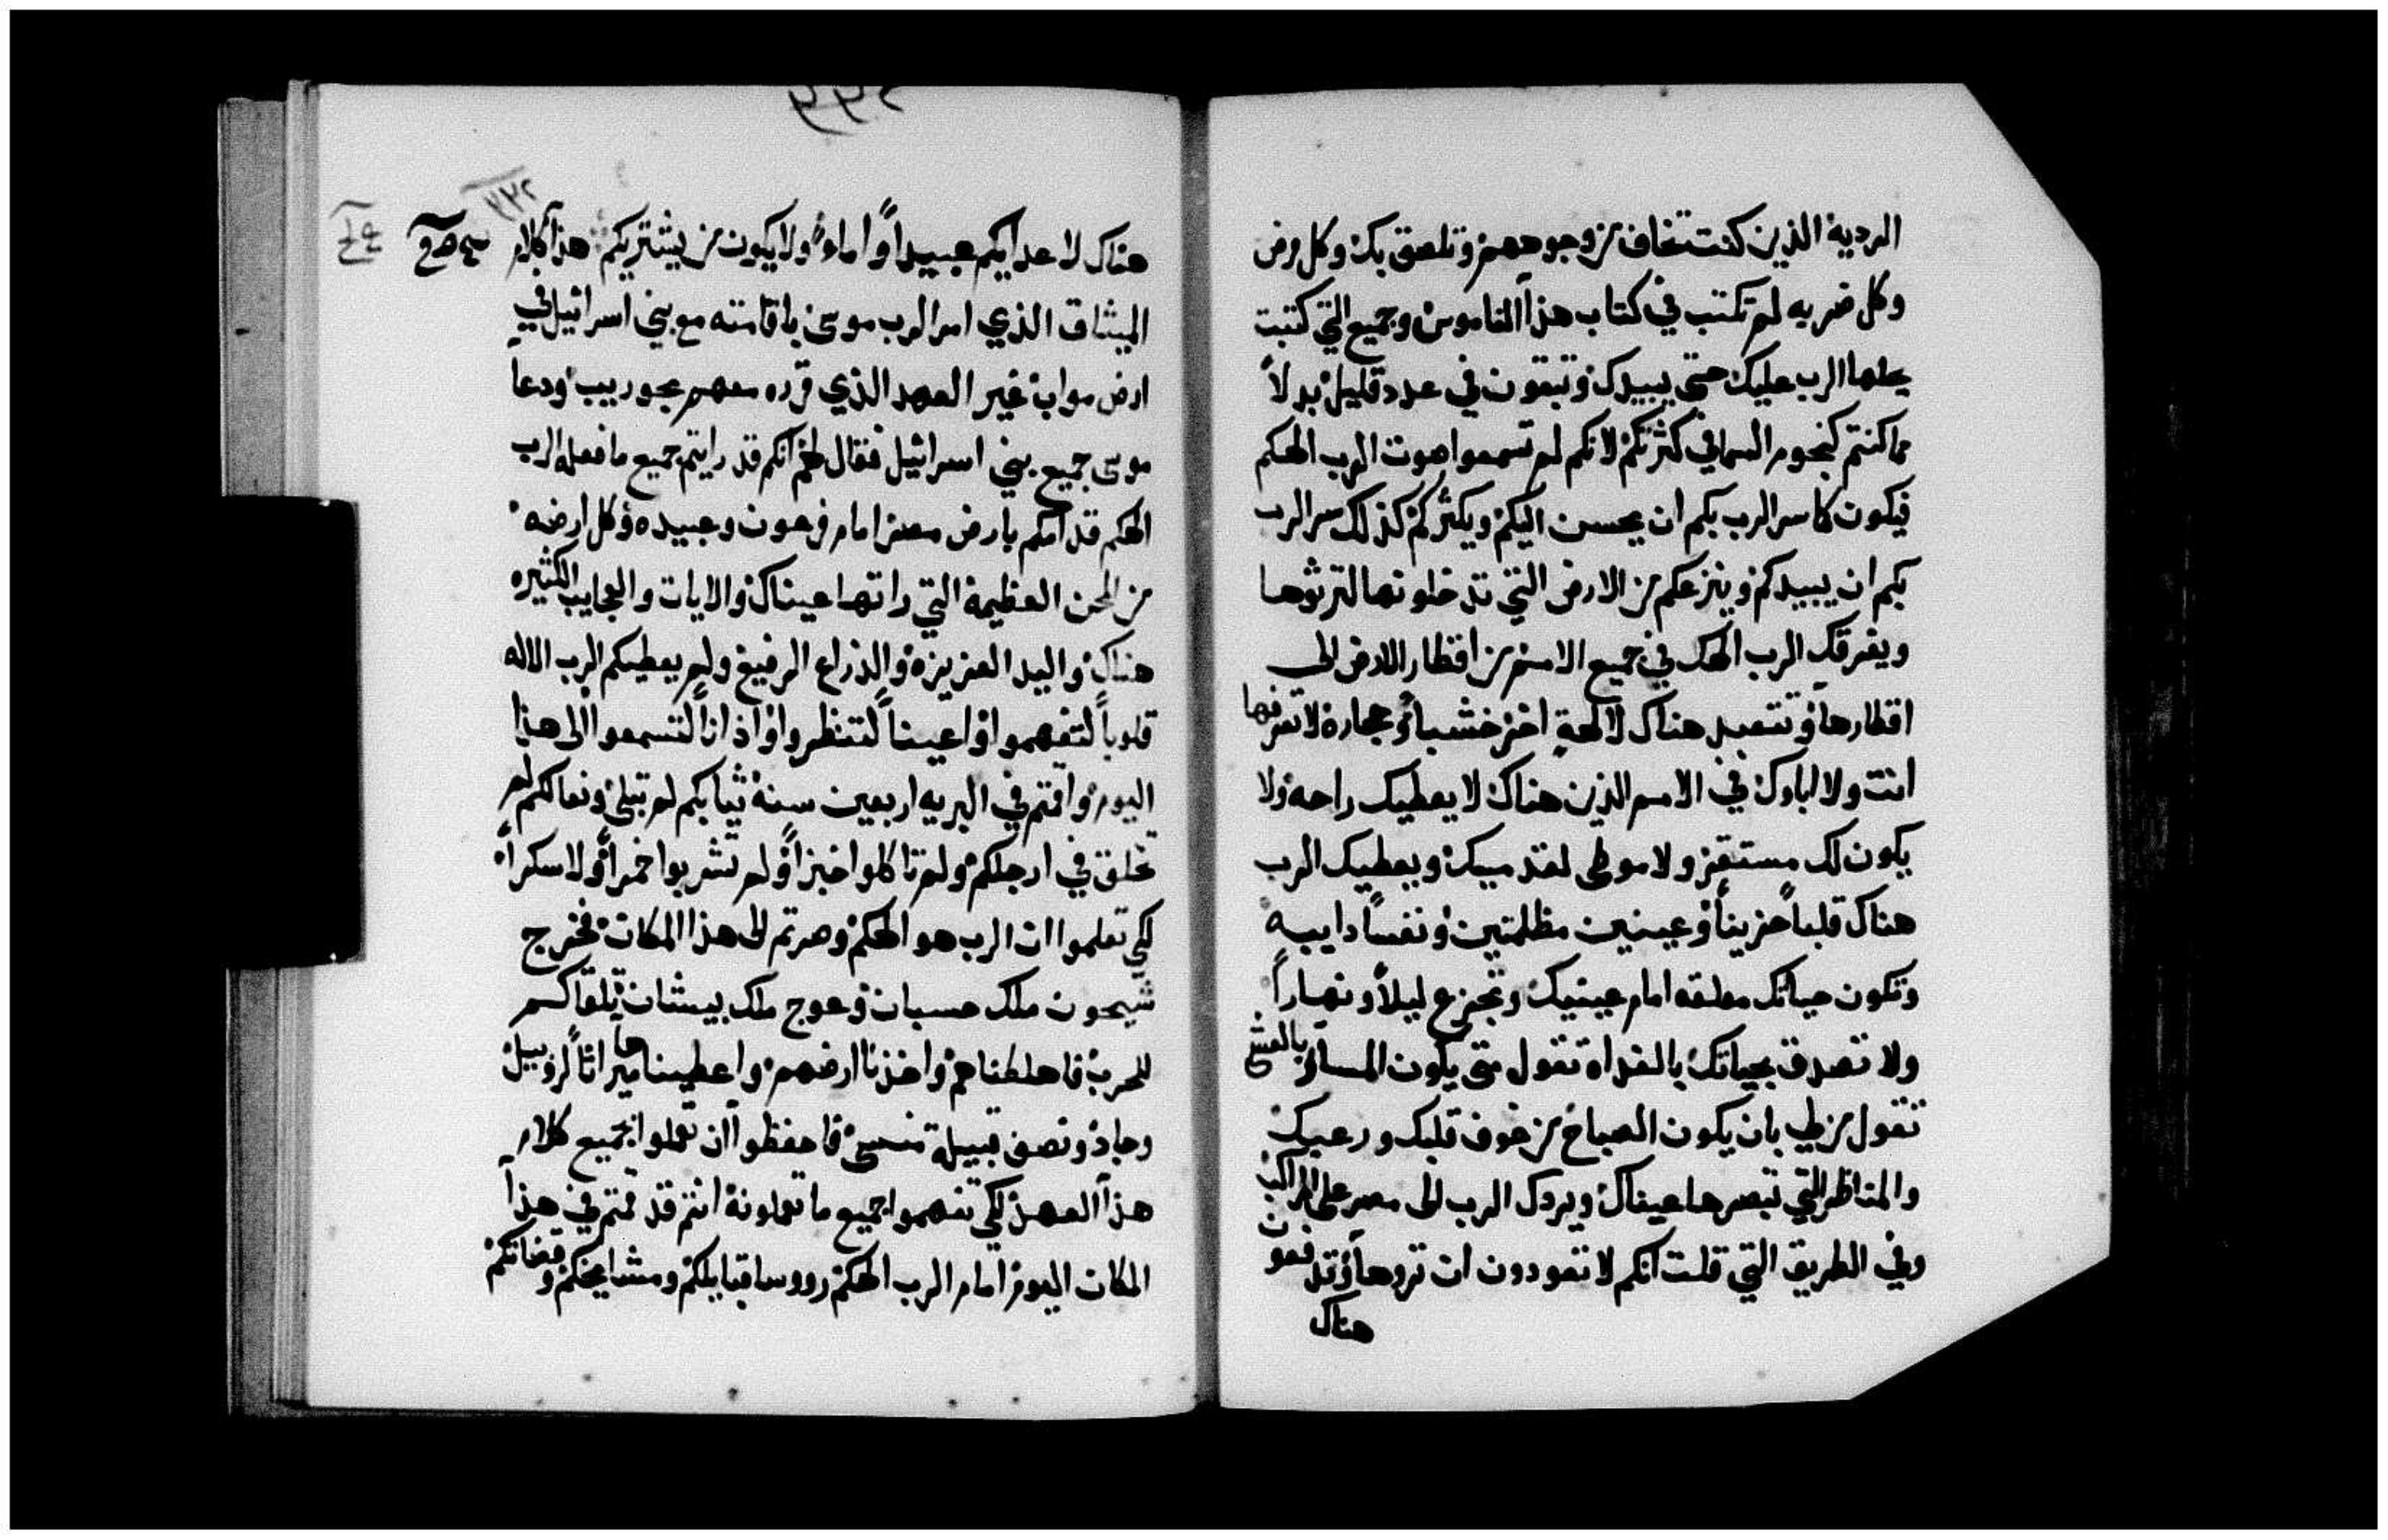 الرديه الذين كنت تخاف من وجوههم وتلصق بك وكل مرض
وكل ضربه لم تكتب في كتاب هذا الناموس وجميع التي كتبت
يجلها الرب عليك حتى يبيدك وتبقون في عدد قليل بدلاً
مما كنتم كنجوم السما في كثرتكم لانكم لم تسمعوا صوت الرب الهكم
فيكون كما سر الرب بكم ان يحسن اليكم ويكثركم كذلك سر الرب
بكم ان يبيدكم وينزعكم من الارض التي تدخلونها لترثوها
ويفرقك الرب الهك في جميع الامم من اقطار الارض الى
اقطارها وتتعبد هناك لالهةٍ اخر خشباً وحجارة لا تعرفها
انت ولا اباوك في الامم الذين هناك لا يعطيك راحه ولا
يكون لك مستقر ولا موطى لقدميك ويعطيك الرب
هناك قلباً حزيناً وعينين مظلمتين ونفساً دايبه
وتكون حياتك معلقه امام عينيك وتجزع ليلاً ونهاراً
ولا تصدق بحياتك بالغداه تقول متى يكون المسا وبالعشي
تقول من لي بان يكون الصباح من خوف قلبك ورعبك
والمناظر التي تبصرها عيناك ويردك الرب الى مصر على المراكب
وفي الطريق التي قلت انكم لا تعودون ان تروها وتدفعون
هناك
٢٣٢
هناك لاعدايكم عبيداً واماءً ولا يكون من يشتريكم هذا كلام
الميثاق الذي امر الرب موسى باقامته مع بني اسرائيل في
ارض مواب غير العهد الذي قرره معهم بحوريب ودعا
موسى جميع بني اسرائيل فقال لهم انكم قد رايتم جميع ما فعله الرب
الهكم قدامكم بارض مصر امام فرعون وعبيده وكل ارضه
من المحن العظيمة التي راتها عيناك والايات والعجايب الكثيره
هناك واليد العزيزه والذراع الرفيع ولم يعطيكم الرب الاله
قلوباً لتفهموا او اعيناً لتنظروا او اذاناً لتسمعوا الى هذا
اليوم واقمتم في البريه اربعين سنة ثيابكم لم تبلى ونعالكم لم
تخلق في ارجلكم ولم تاكلوا خبزاً ولم تشربوا خمراً ولا سكراً
لكي تعلموا ان الرب هو الهكم وصرتم الى هذا المكان فخرج
شيحون ملك حسبان وعوج ملك بيشان تلقاكم
للحرب فاهلكناهم واخذنا ارضهم واعطيناها ميراثاً لروبيل
وجاد ونصف قبيلة منسى فاحفظوا ان تعملوا بجميع كلام
هذا العهد لكي تفهموا جميع ما تعملونه انتم قد قمتم في هذا
المكان اليوم امام الرب الهكم رووسا قبايلكم ومشايخكم وقضاتكم